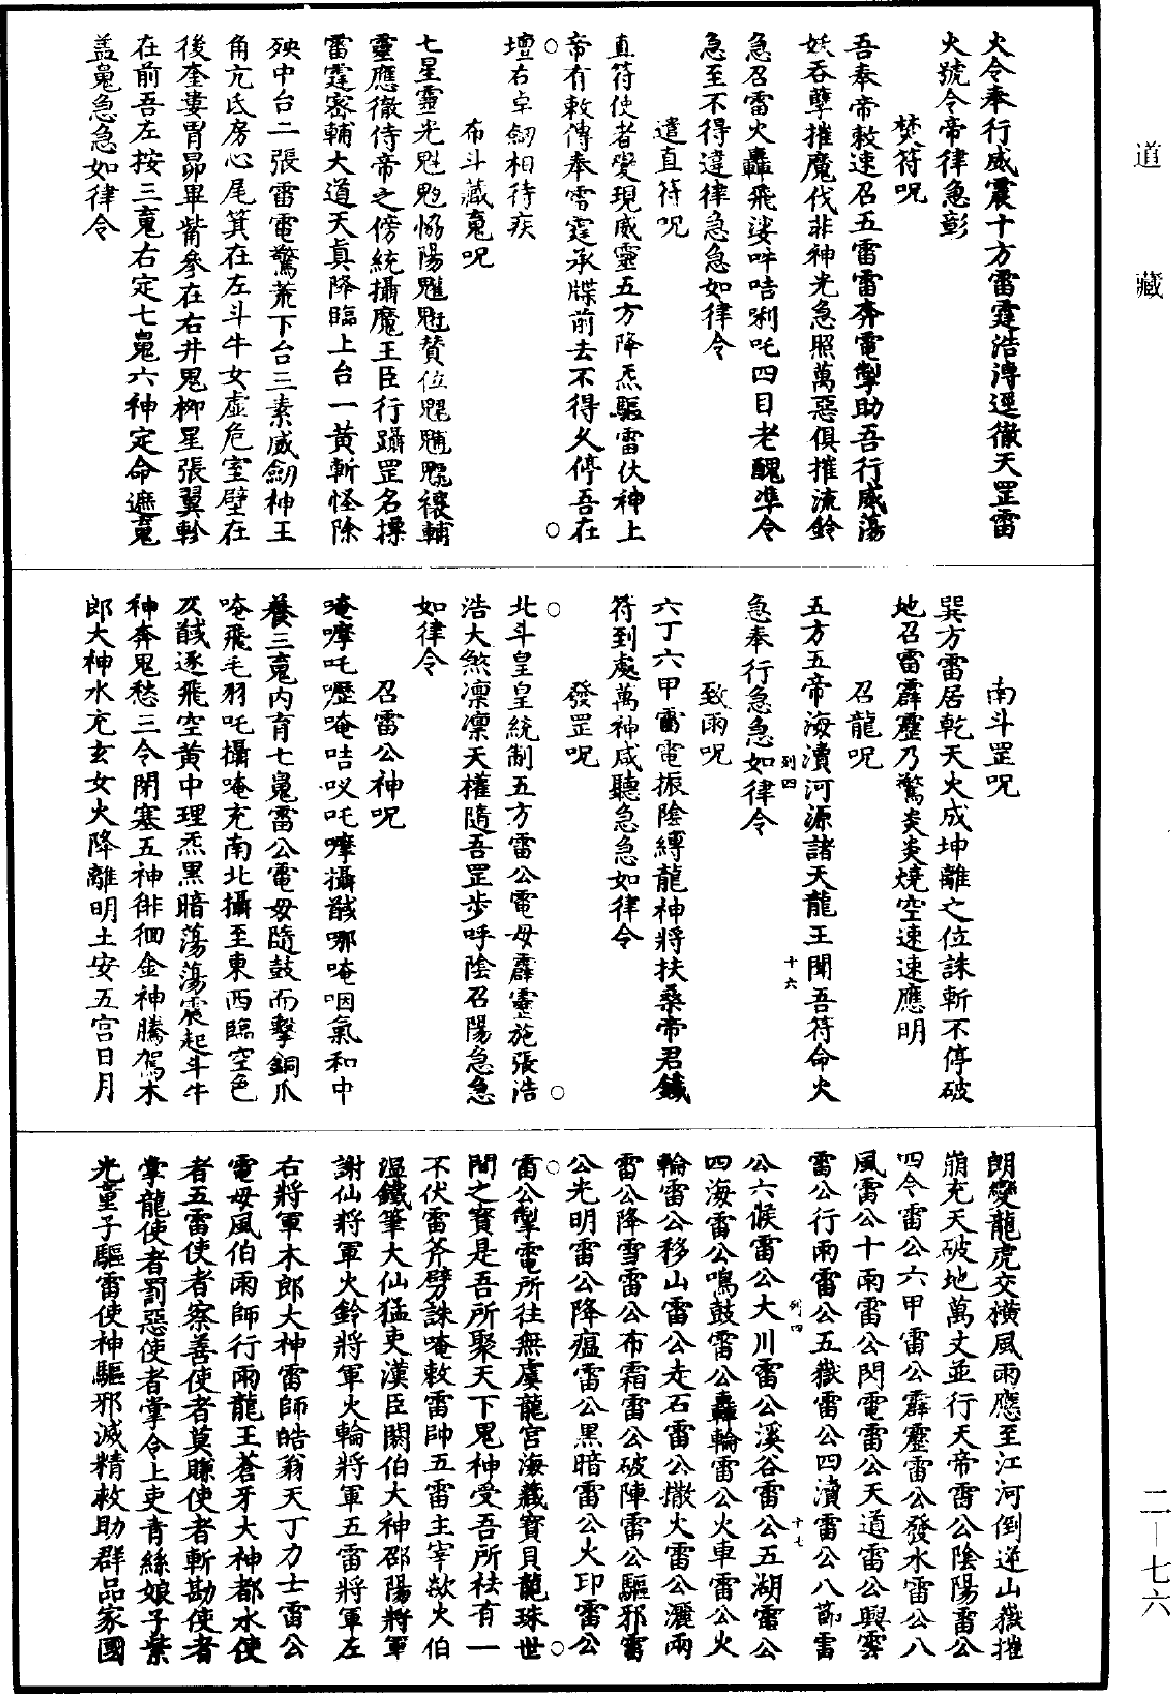 道藏
火令奉行威震十方雷霆浩漙逕徹天罡雷
火號令帝律急彰
焚符呪
吾奉帝敕速召五雷雷奔電掣助吾行威蕩
妖吞孽摧魔伐非神光急照萬惡俱摧流鈴
急召雷火轟飛娑吽咭唎吒四目老醜準令
急至不得違律急急如律令
遣直符呪
直符使者變現威靈五方降炁驅雷伏神上
帝有敕傳奉雷霆承牒前去不得久停吾在
壇右卓劒相待疾
布斗藏䰟呪
七星靈光魁𩲃惱陽魓魋贊位魒魖魒禳輔
靈應徹侍帝之傍統攝魔王臣行躡罡名標
雷霆密輔大道天真降臨上台一黃斬怪除
殃中台二張雷電驚荒下台三素威劒神王
角亢氐房心尾箕在左斗牛女虛危室壁在
後奎婁胃昴畢觜參在右井鬼柳星張翼軫
在前吾左按三䰟右定七䰟六神定命遮䰟
蓋䰟急急如律令
南斗罡呪
巽方雷居乾天火成坤離之位誅斬不停破
地召雷霹靂乃驚炎炎燒空速速應明
召龍呪
五方五帝海瀆河源諸天龍王聞吾符命火
列四 十六
急奉行急急如律令
致雨呪
六丁六甲雷電振陰縛龍神將扶桑帝君鐵
符到處萬神咸聽急急如律令
發罡呪
北斗皇皇統制五方雷公電母霹靂施張浩
浩大煞凛凛天權隨吾罡步呼陰召陽急急
如律令
召雷公神呪
唵嚤吒嚦唵咭㕤吒嚤攝馘哪唵咽氣和中
養三䰟內育七䰟雷公電母隨鼓而擊銅爪
唵飛毛羽吒攝唵充南北攝至東西臨空色
及馘逐飛空黃中理炁黑暗蕩蕩震起斗牛
神奔鬼愁三令閉塞五神徘徊金神騰駕木
郎大神水充玄女火降離明土安五宮日月
朗變龍虎交橫風雨應至江河倒逆山嶽摧
崩充天破地萬丈並行天帝雷公陰陽雷公
四令雷公六甲雷公霹靂雷公發水雷公八
風雷公十雨雷公閃電雷公天道雷公興雲
雷公行雨雷公五嶽雷公四瀆雷公八節雷
列四 十七
公六候雷公大川雷公溪谷雷公五湖雷公
四海雷公鳴鼓雷公轟輪雷公火車雷公火
輪雷公移山雷公走石雷公撒火雷公灑雨
雷公降雪雷公布霜雷公破陣雷公驅邪雷
公光明雷公降瘟雷公黑暗雷公火印雷公
雷公掣電所往無虞龍宮海藏寶貝龍珠世
間之寶是吾所聚天下鬼神受吾所祛有一
不伏雷斧劈誅唵敕雷帥五雷主宰欻火伯
溫鐵筆大仙猛吏漢臣關伯大神邵陽將軍
謝仙將軍火鈴將軍火輪將軍五雷將軍左
右將軍木郎大神雷師皓翁天丁力士雷公
電母風伯雨師行雨龍王蒼牙大神都水使
者五雷使者察善使者莫賺使者斬勘使者
掌龍使者罰惡使者掌令上吏青絲娘子紫
光童子驅雷使神驅邪滅精救助群品家國
二—七六